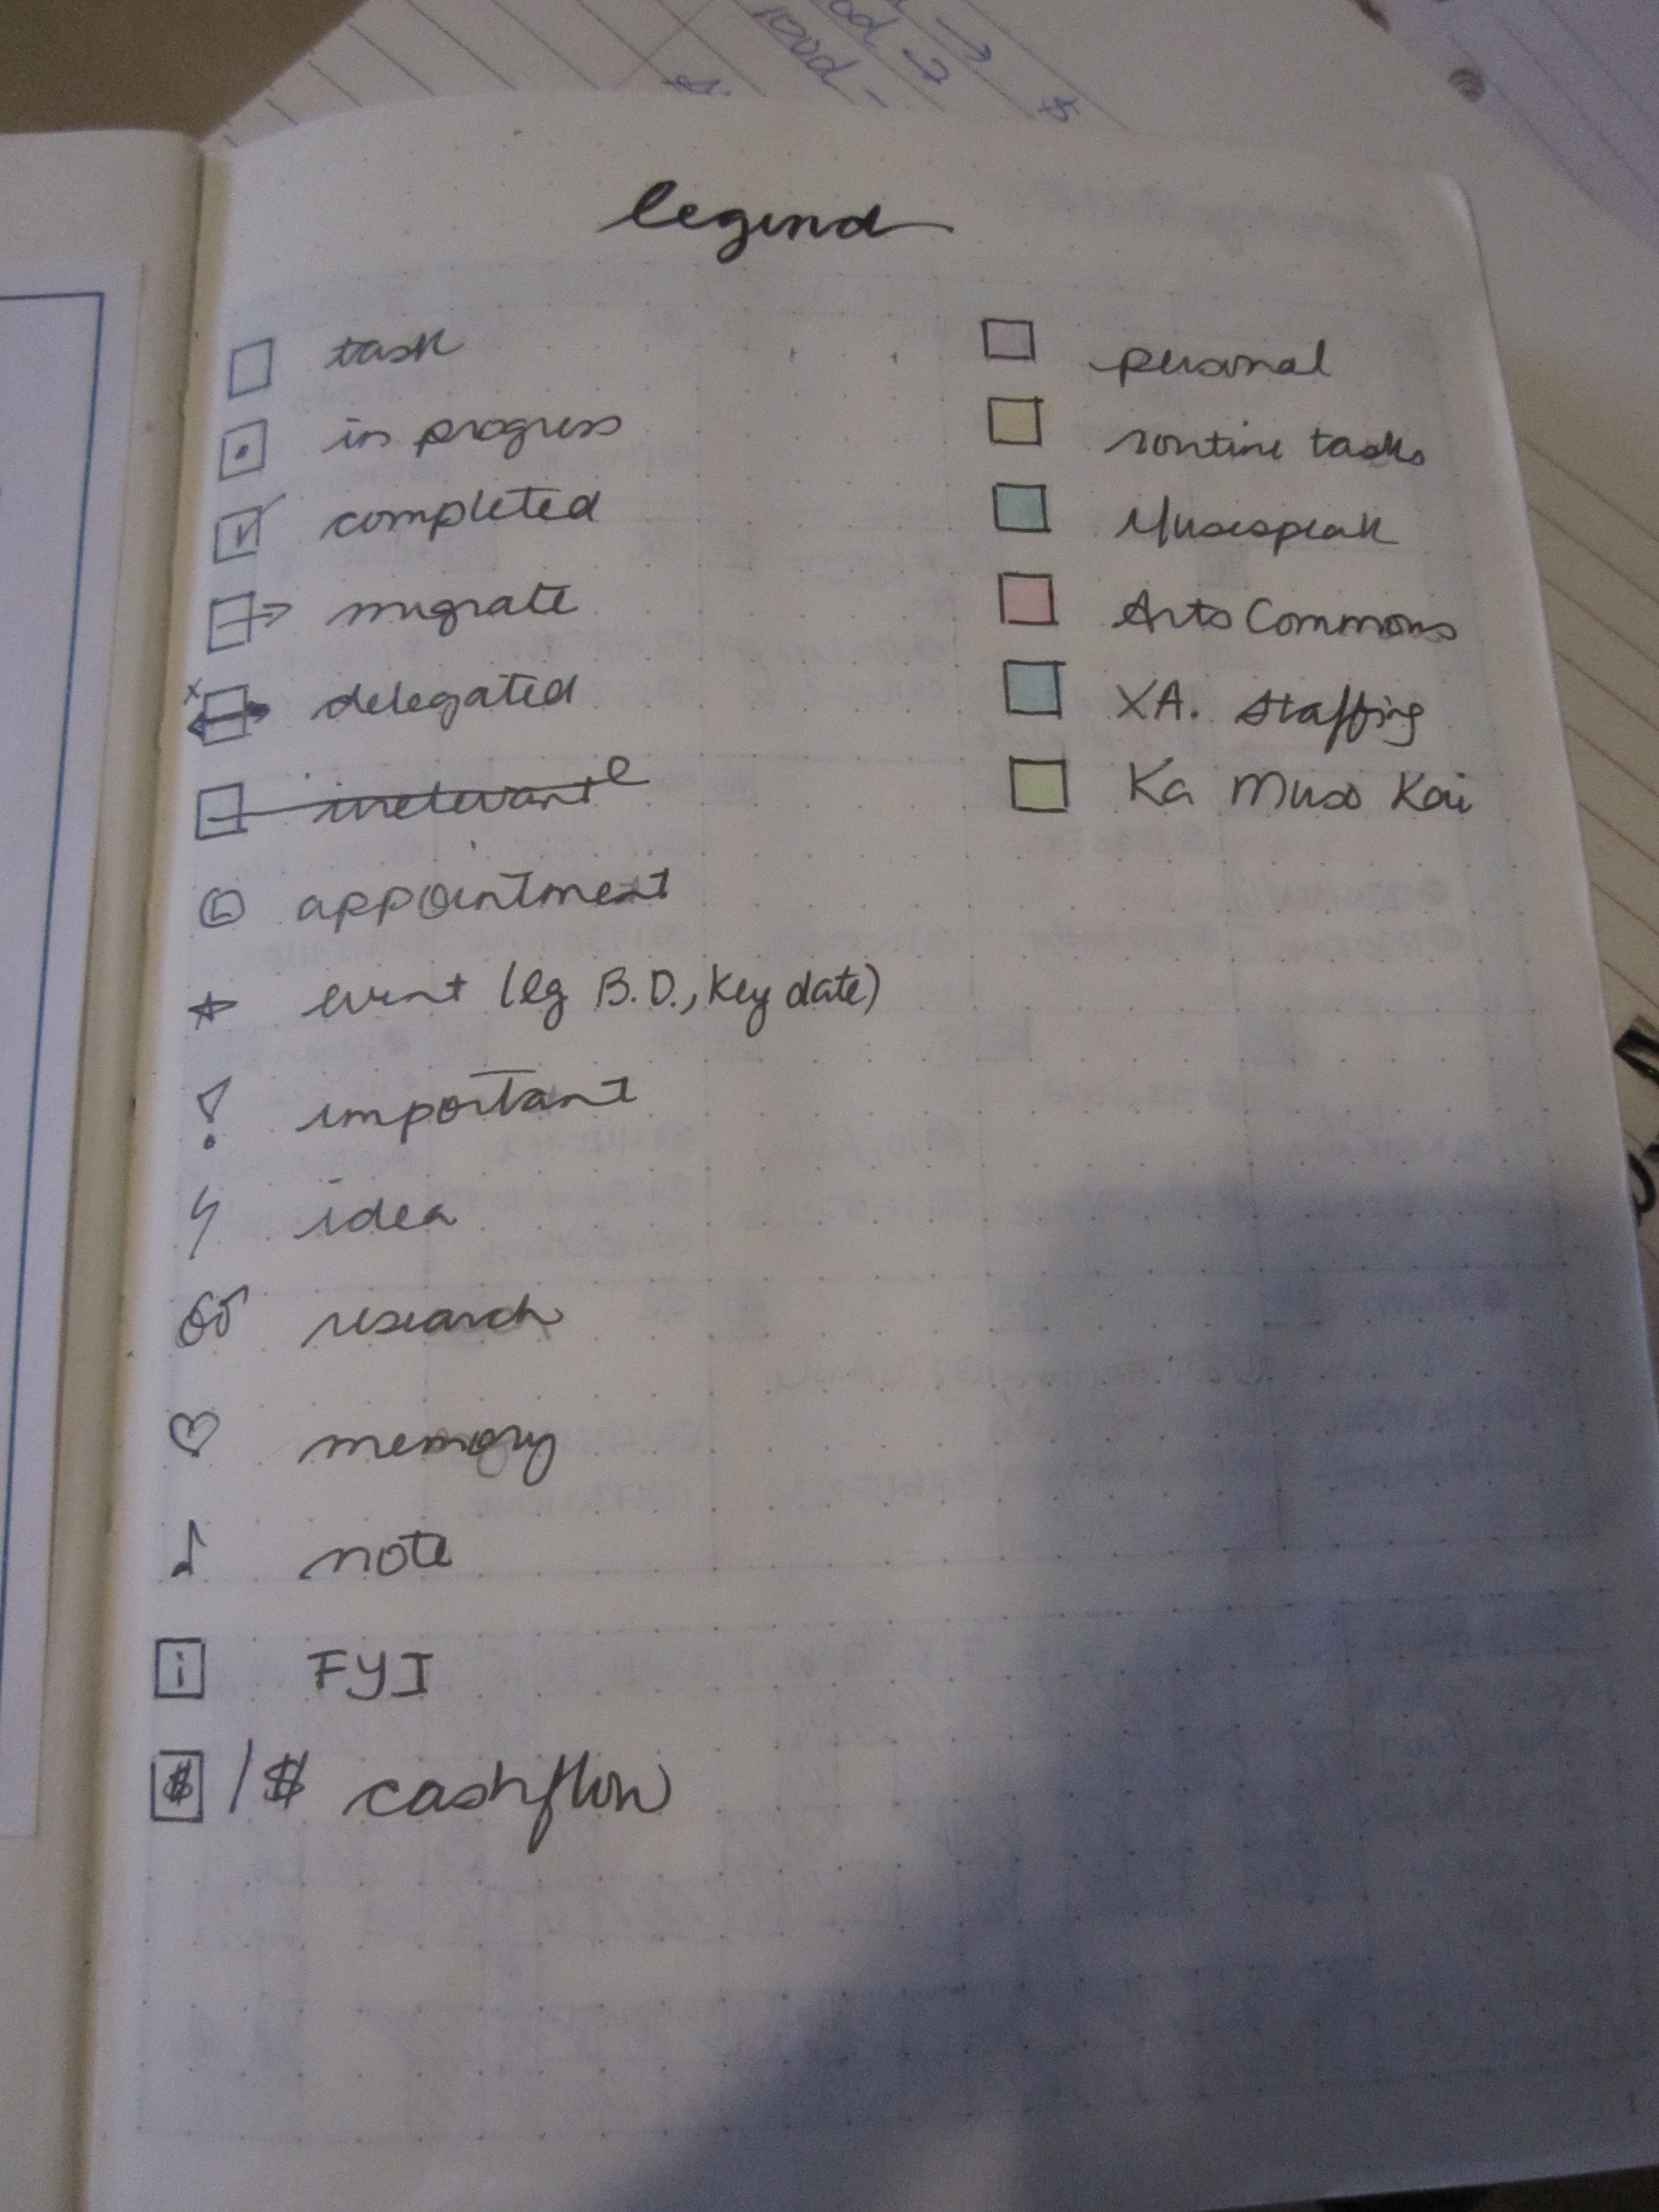 legend
task
in progress
completed
migrate
x delegated
irrelevant
appointment
event (eg B.D., Key date)
! important
idea
research
memory
note
i FYI
$ / $ cashflow
personal
routine tasks
Musespeak
Arts Commons
XA. Staffing
Ka Muso Kai